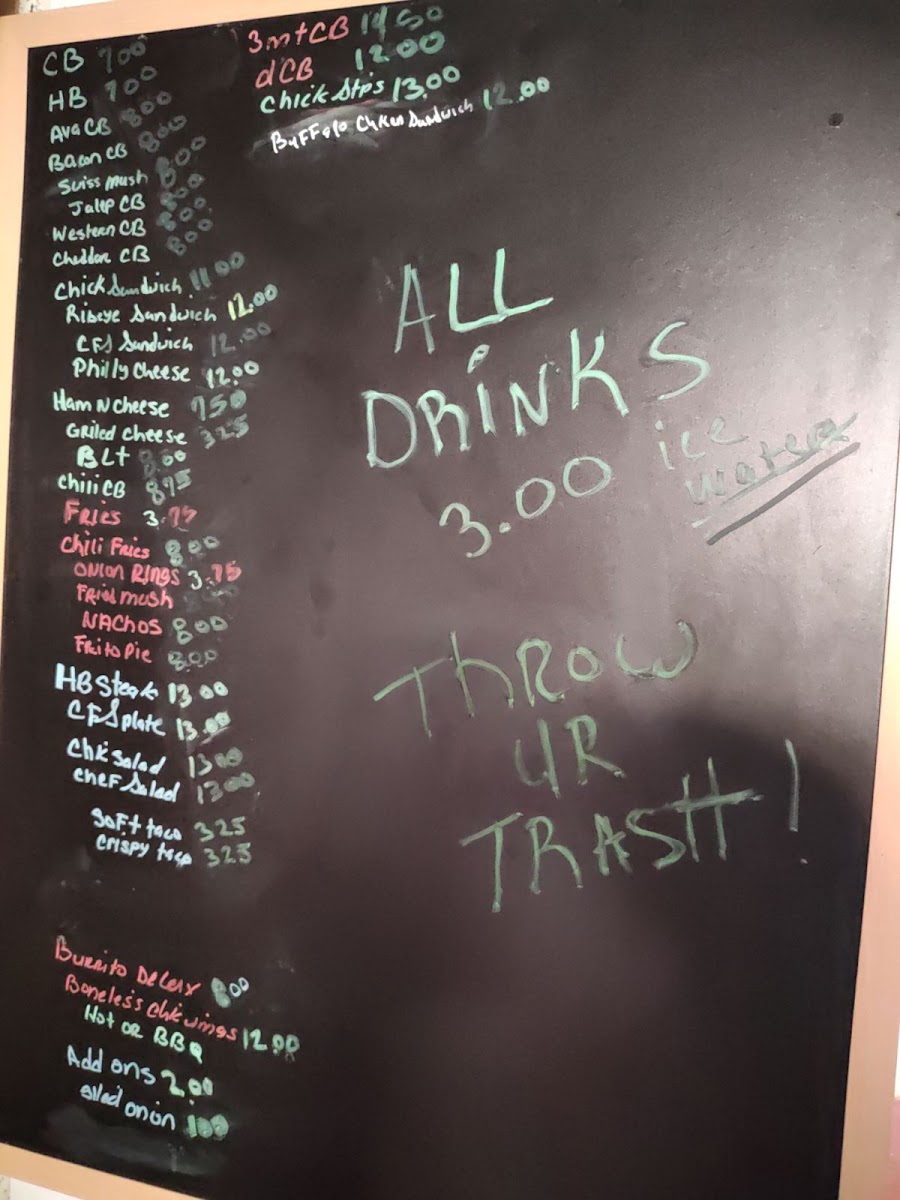 CB 700
HB 700
Ava CB 800
Bacon CB 800
Suiss Mush 800
Jalep CB 800
Western CB 800
Cheddar CB 800
Chick Sandwich 11.00
Ribeye Sandwich 12.00
CFS Sandwich 12.00
Philly Cheese 12.00
Ham N Cheese 750
Griled Cheese 325
BLt 8.00
Chili CB 875
FRies 3.75
Chili Fries 800
ONion Rings 3.75
FRied mush
NACHOS 800
FRito Pie 800
HB Steak 13 00
CFS plate 13.00
Chk Salad 1300
Chef Salad 1300
Soft taco 325
Crispy taco 325
Burrito Delux 800
Boneless Chk wings 12.00
Hot or BBQ
Add ons 2.00
onion 100
3 mt CB
dCB 12.00
Chick Stps 13.00
BuFFalo Chken Sandwich 12.00
ALL
DRiNKS
3.00 ice
water
ThROW
UR
TRASH!